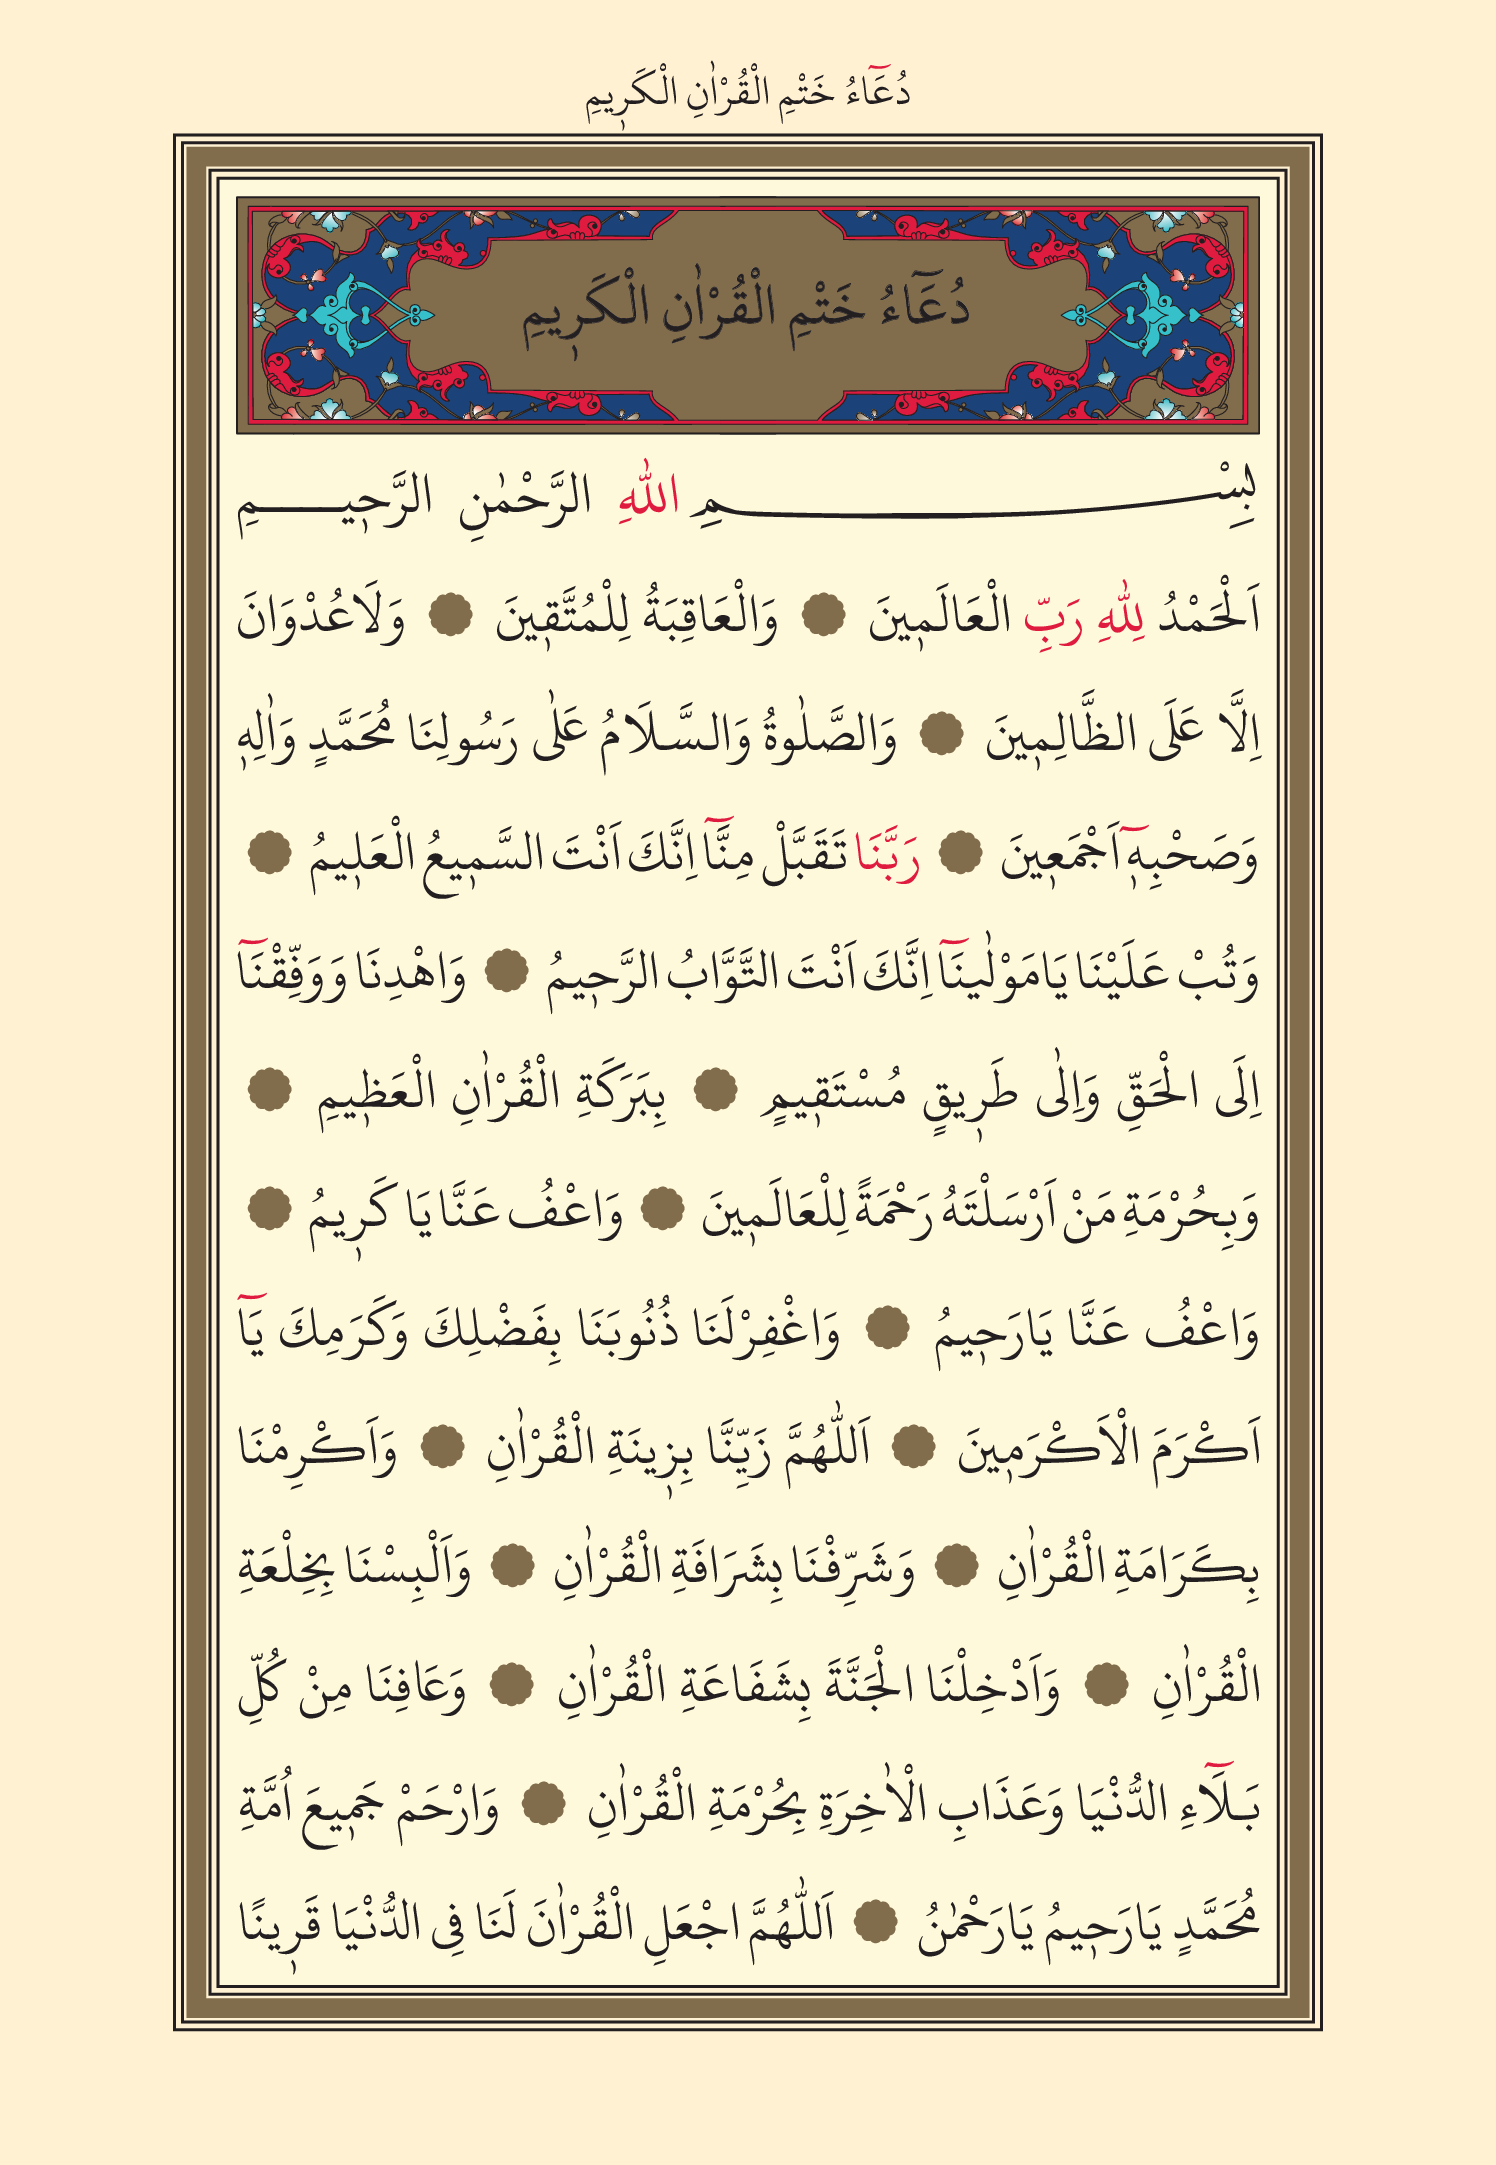 دُعَٓاءُ خَتْمِ الْقُرْاٰنِ الْكَر۪يمِ
دُعَٓاءُ خَتْمِ الْقُرْاٰنِ الْكَر۪يمِ
بِسْمِ اللّٰهِ الرَّحْمٰنِ الرَّح۪يمِ
اَلْحَمْدُ لِلّٰهِ رَبِّ الْعَالَم۪ينَ ۝ وَالْعَاقِبَةُ لِلْمُتَّق۪ينَ ۝ وَلَاعُدْوَانَ
اِلَّا عَلَى الظَّالِم۪ينَ ۝ وَالصَّلٰوةُ وَالسَّلَامُ عَلٰى رَسُولِنَا مُحَمَّدٍ وَاٰلِه۪
وَصَحْبِه۪ٓ اَجْمَع۪ينَ ۝ رَبَّنَا تَقَبَّلْ مِنَّٓا اِنَّكَ اَنْتَ السَّم۪يعُ الْعَل۪يمُ ۝
وَتُبْ عَلَيْنَا يَامَوْلٰينَٓا اِنَّكَ اَنْتَ التَّوَّابُ الرَّح۪يمُ ۝ وَاهْدِنَا وَوَفِّقْنَٓا
اِلَى الْحَقِّ وَاِلٰى طَر۪يقٍ مُسْتَق۪يمٍ ۝ بِبَرَكَةِ الْقُرْاٰنِ الْعَظ۪يمِ ۝
وَبِحُرْمَةِ مَنْ اَرْسَلْتَهُ رَحْمَةً لِلْعَالَم۪ينَ ۝ وَاعْفُ عَنَّا يَا كَر۪يمُ ۝
وَاعْفُ عَنَّا يَارَح۪يمُ ۝ وَاغْفِرْلَنَا ذُنُوبَنَا بِفَضْلِكَ وَكَرَمِكَ يَٓا
اَكْرَمَ الْاَكْرَم۪ينَ ۝ اَللّٰهُمَّ زَيِّنَّا بِز۪ينَةِ الْقُرْاٰنِ ۝ وَاَكْرِمْنَا
بِكَرَامَةِ الْقُرْاٰنِ ۝ وَشَرِّفْنَا بِشَرَافَةِ الْقُرْاٰنِ ۝ وَاَلْبِسْنَا بِخِلْعَةِ
الْقُرْاٰنِ ۝ وَاَدْخِلْنَا الْجَنَّةَ بِشَفَاعَةِ الْقُرْاٰنِ ۝ وَعَافِنَا مِنْ كُلِّ
بَلَٓاءِ الدُّنْيَا وَعَذَابِ الْاٰخِرَةِ بِحُرْمَةِ الْقُرْاٰنِ ۝ وَارْحَمْ جَم۪يعَ اُمَّةِ
مُحَمَّدٍ يَارَح۪يمُ يَارَحْمٰنُ ۝ اَللّٰهُمَّ اجْعَلِ الْقُرْاٰنَ لَنَا فِى الدُّنْيَا قَر۪ينًا